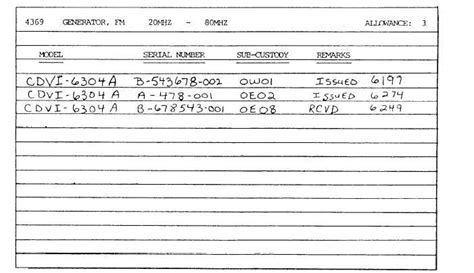 4369 GENERATOR, FM 20MHZ - 80MHZ ALLOWANCE: 3
MODEL SERIAL NUMBER SUB-CUSTODY REMARKS
CDVI-6304A B-543678-002 OW01 ISSUED 6197
CDVI-6304A A-478-001 OE02 ISSUED 6274
CDVI-6304A B-678543-001 OE08 RCVD 6249